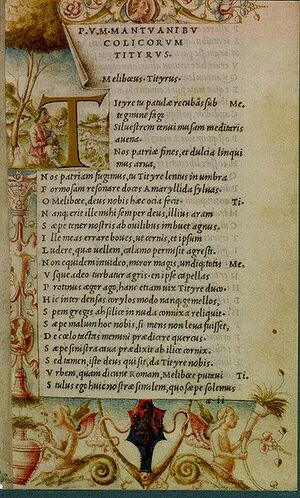 P. V. M. MANTVANI BV
COLICORVM
TITYRVS.
Melibœus. Tityrus.
Tityre tu patulæ recubās sub Me.
tegmine fagi
Siluestrem tenui musam meditaris
auena.
Nos patriæ fines, et dulcia linqui
mus arua,
Nos patriam fugimus, tu Tityre lentus in umbra
Formosam resonare doces Amaryllida syluas.
O Melibœe, deus nobis hæc ocia fecit. Ti.
Nanq; erit ille mihi semper deus, illius aram
Sæpe tener nostris ab ouilibus imbuet agnus.
Ille meas errare boues, ut cernis, et ipsum
Ludere, quæ uellem, calamo permisit agresti.
Non equidem inuideo, miror magis, undiq; totis Me.
Vsque adeo turbatur agris. en ipse capellas
Protinus æger ago, hanc etiam uix Tityre duco.
Hic inter densas corylos modo nanq; gemellos,
Spem gregis ah silice in nuda connixa reliquit.
Sæpe malum hoc nobis, si mens non leua fuisset,
De cœlo tactas memini prædicere quercus.
Sæpe sinistra caua prædixit ab ilice cornix.
Sed tamen, iste deus qui sit, da Tityre nobis.
Vrbem, quam dicunt Romam, Melibœe putaui Ti.
Stultus ego huic nostræ similem, quo sæpe solemus
a ii